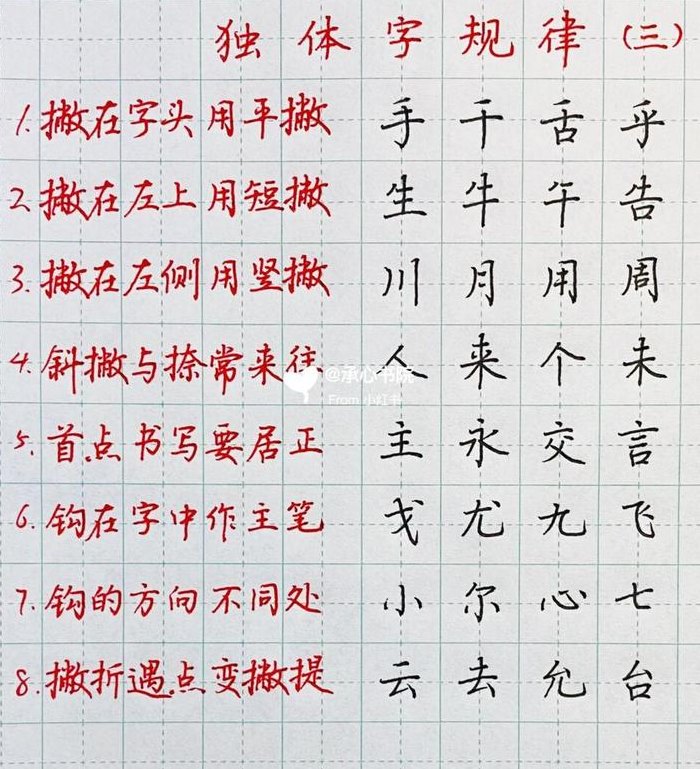 独体字规律(三)
1.撇在字头用平撇 手干舌乎
2.撇在左上用短撇 生牛午告
3.撇在左侧用竖撇 川月用周
4.斜撇与捺常来往 人来个未
@承心书院
From 小红书
5.首点书写要居正 主永交言
6.钩在字中作主笔 戈尤九飞
7.钩的方向不同处 小尔心七
8.撇折遇点变撇提 云去允台